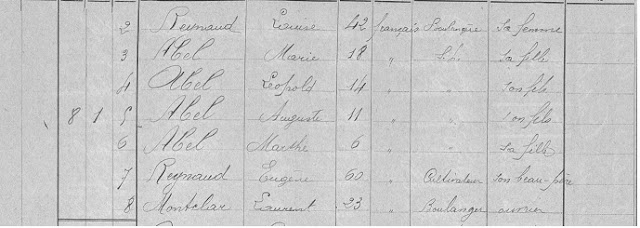 2 Reynaud Louise 42 française Boulangère sa femme
3 Abel Marie 18 " id. sa fille
4 Abel Léopold 14 " " son fils
8 1 5 Abel Auguste 11 " " son fils
6 Abel Marthe 6 " " sa fille
7 Reynaud Eugène 60 " Cultivateur son beau-père
8 Montclar Laurent 23 " Boulanger ouvrier